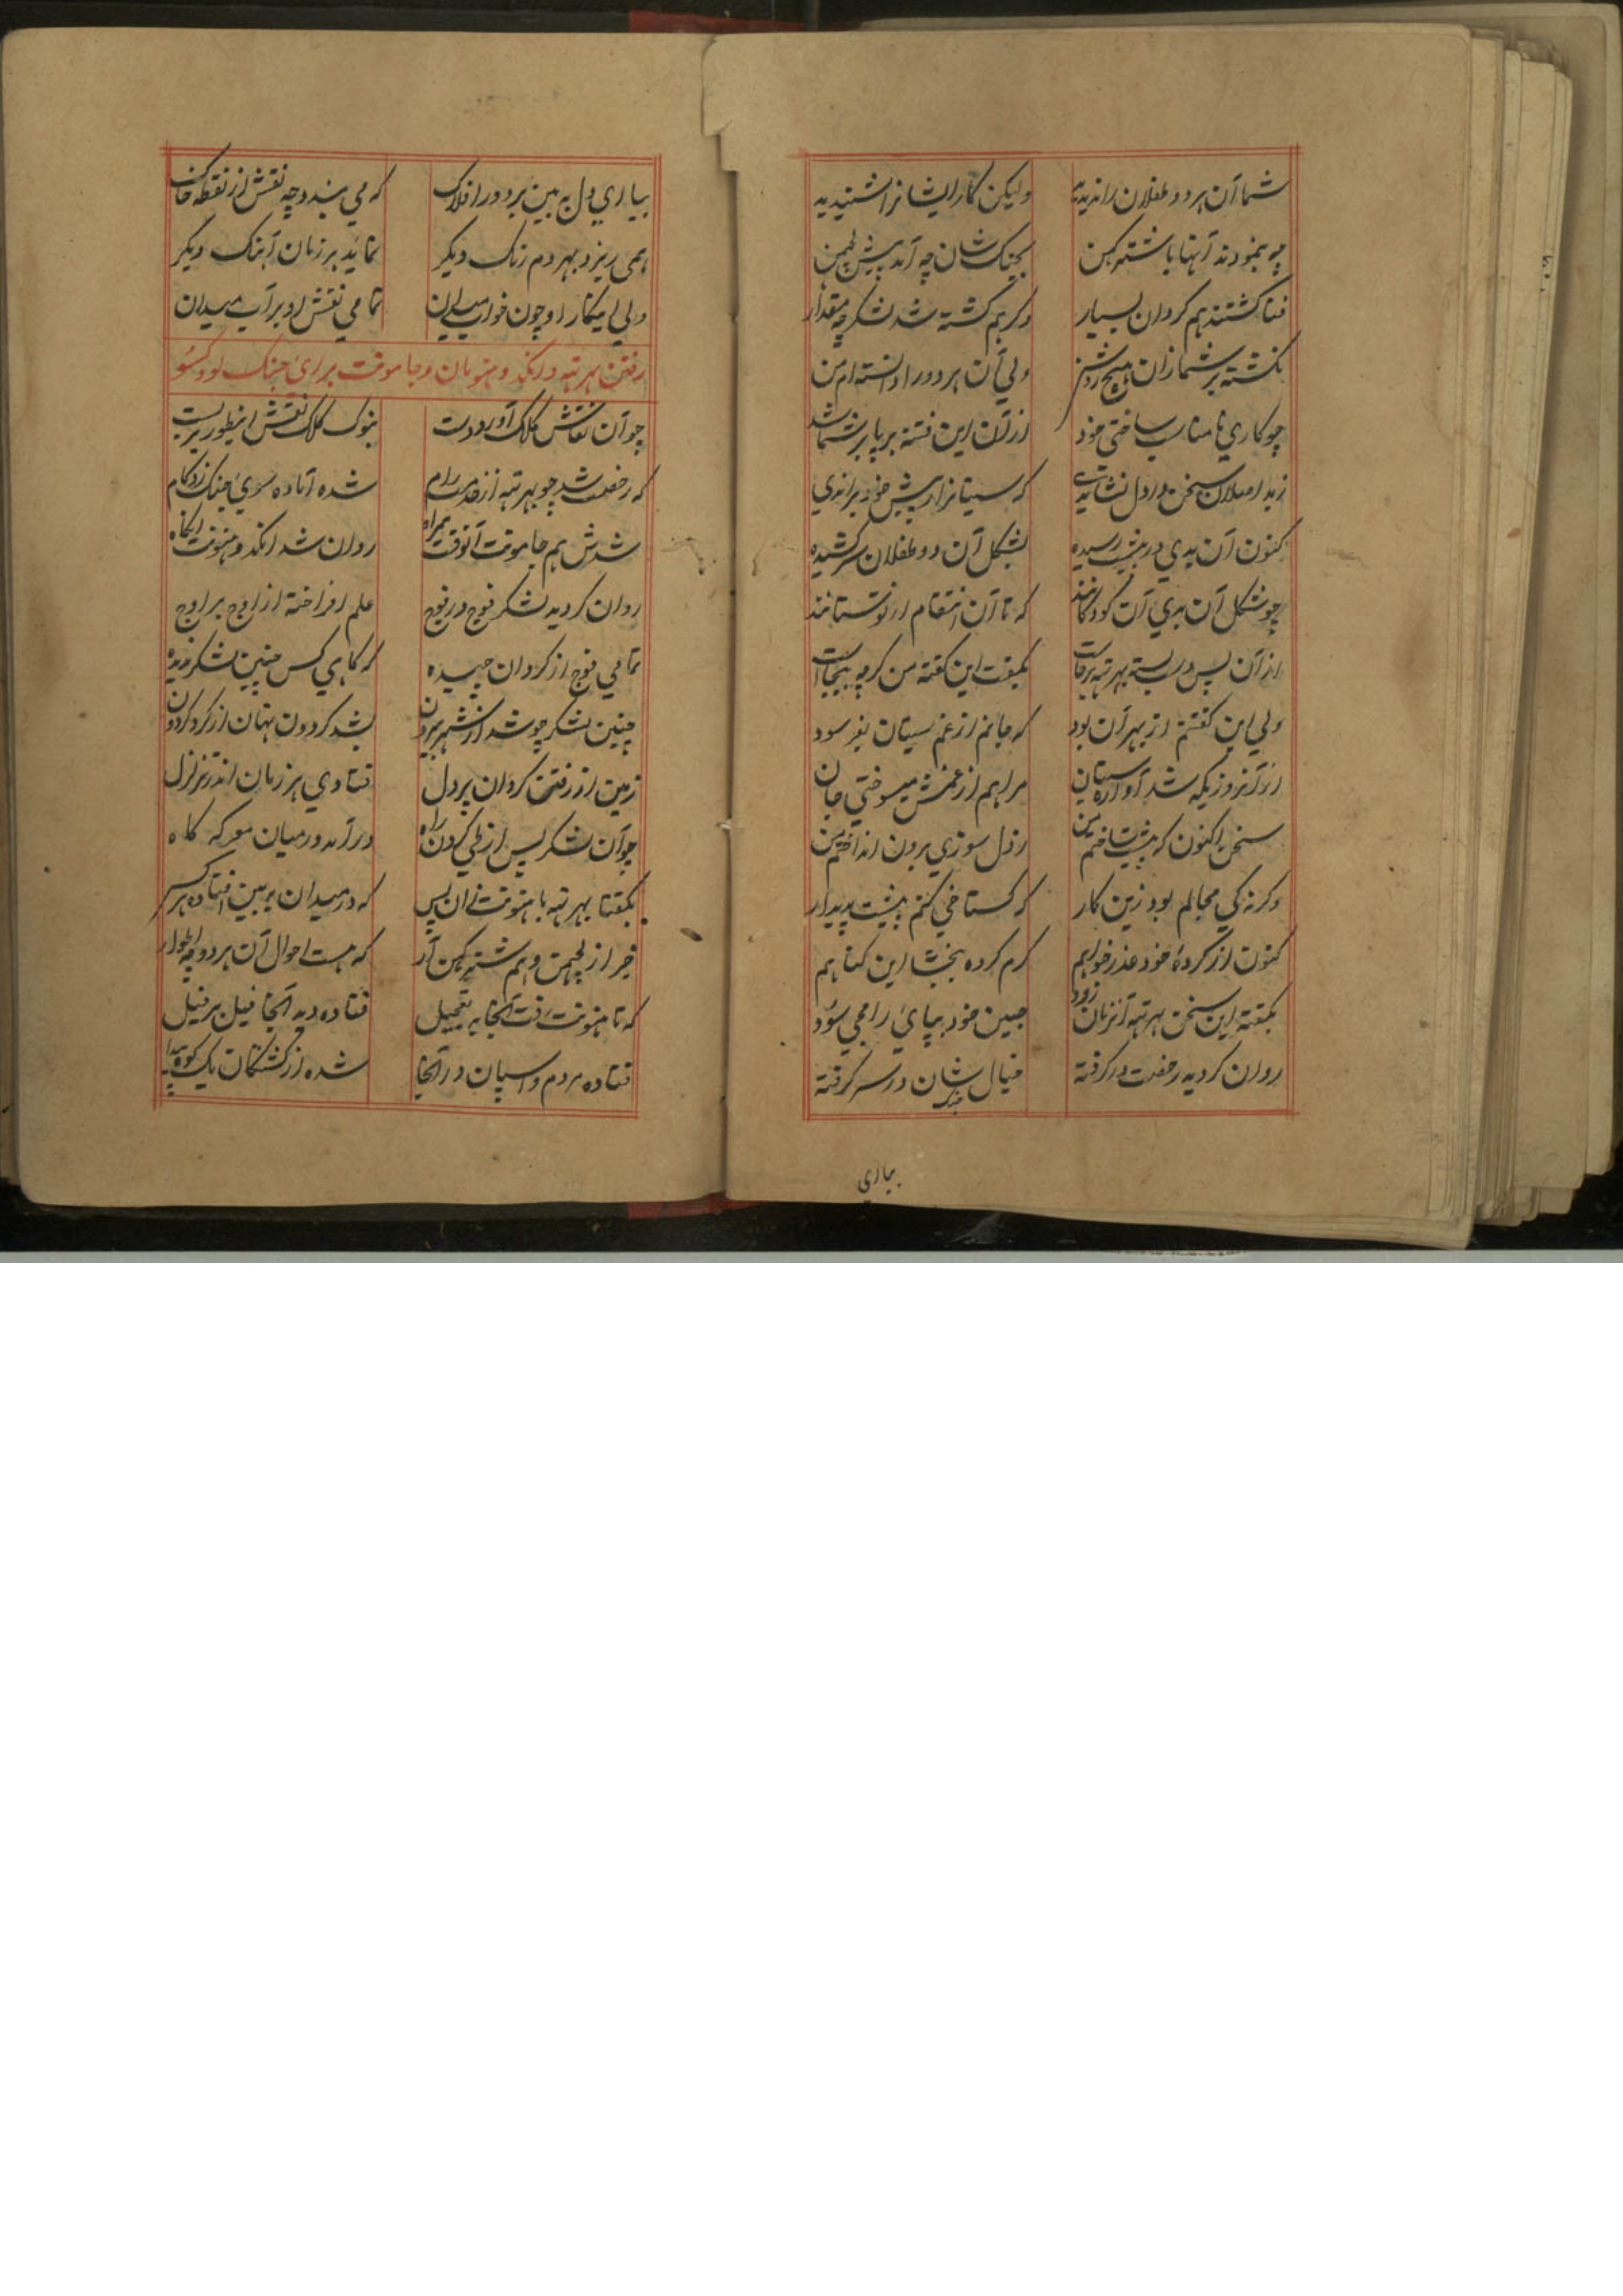 شما آن هر دو طفلان را ندیدید ولیکن کار ایشانرا شنیدید
چه بنمودند آنها با شتر کهن بجنک شان چه آمد پیش لچمن
فنا کشتند هم کردان بسیار وکر هم کشته شد لشکر چه مقدار
نکشته بر شما زان هیچ روشن ولی آن هر دو را دانسته ام من
چو کاری نامناسب ساختی خود از آن این فتنه برپا بر شما شد
سخن در دل که سیتا نرا ز پیش خود براندی
کنون آن بدی در پیشت رسیده بشکل آن دو طفلان سر کشیده
چو شکل آن بدی آن کودکانند که تا آن انتقام از تو ستانند
از آن پس بهرته برخاست بکفت این کفته من کرچه بیجاست
ولی این کفتنم از بهر آن بود که جانم از غم سیتا
از آنروزیکه شد آواره سیتا مرا هم از غمش میسوختی جان
سخن اکنون که پیشت ساختم من ز دل سوزی برون انداختم من
وکرنه کی مجالم بود زین کار که کستاخی کنم پیشت پدیدار
کنون از کردهٔ خود عذر خواهم کرم کرده ببخشا این کناهم
بکفته این سخن بهرته آنزمان زود جبین خود بپای رام می سود
روان کردید رخصت در کرفته خیال جنک شان در سر کرفته
بیاری
بیاری دل به بین بر دور افلاک که می بندد چه نقش از نقطه خاک
همی ریزد بهر دم رنک دیکر نماید هر زمان آهنک دیکر
ولی اینکار او چون خواب میدان تمامی نقش او بر آب میدان
رفتن بهرته و انکد و هنومان و جاموقت برای جنک لو و کسو
چو آن نقاش کلک آورد در دست بنوک کلک نقش اینطور بر بست
که رخصت شد چو بهرته از خدمت رام شده آماده سوی جنک زد کام
شدش هم جاموقت آنوقت همراه روان شد انکد و هنونت آنکاه
روان کردید لشکر فوج در فوج علم افراخته از اوج بر اوج
تمامی فوج از کردان چیده که کاهی کس چنین لشکر ندیده
چنین لشکر چو شد از شهر بیرون بشد کردون نهان از کرد کردون
زمین از رفتن کردان پر دل فتادی هر زمان اندر تزلزل
چو آن لشکر پس از طی کردن راه در آمد در میان معرکه کاه
بکفتا بهرته با هنونت زان پس که در میدان ببین افتاده هر کس
خبر از لچمن و هم شتر کهن آر که هست احوال آن هر دو چه اطوار
که تا هنونت رفت آنجا به تعجیل فتاده دید آنجا فیل بر فیل
فتاده مردم و اسپان در آنجا شده از کشتکان یک کوه پیدا